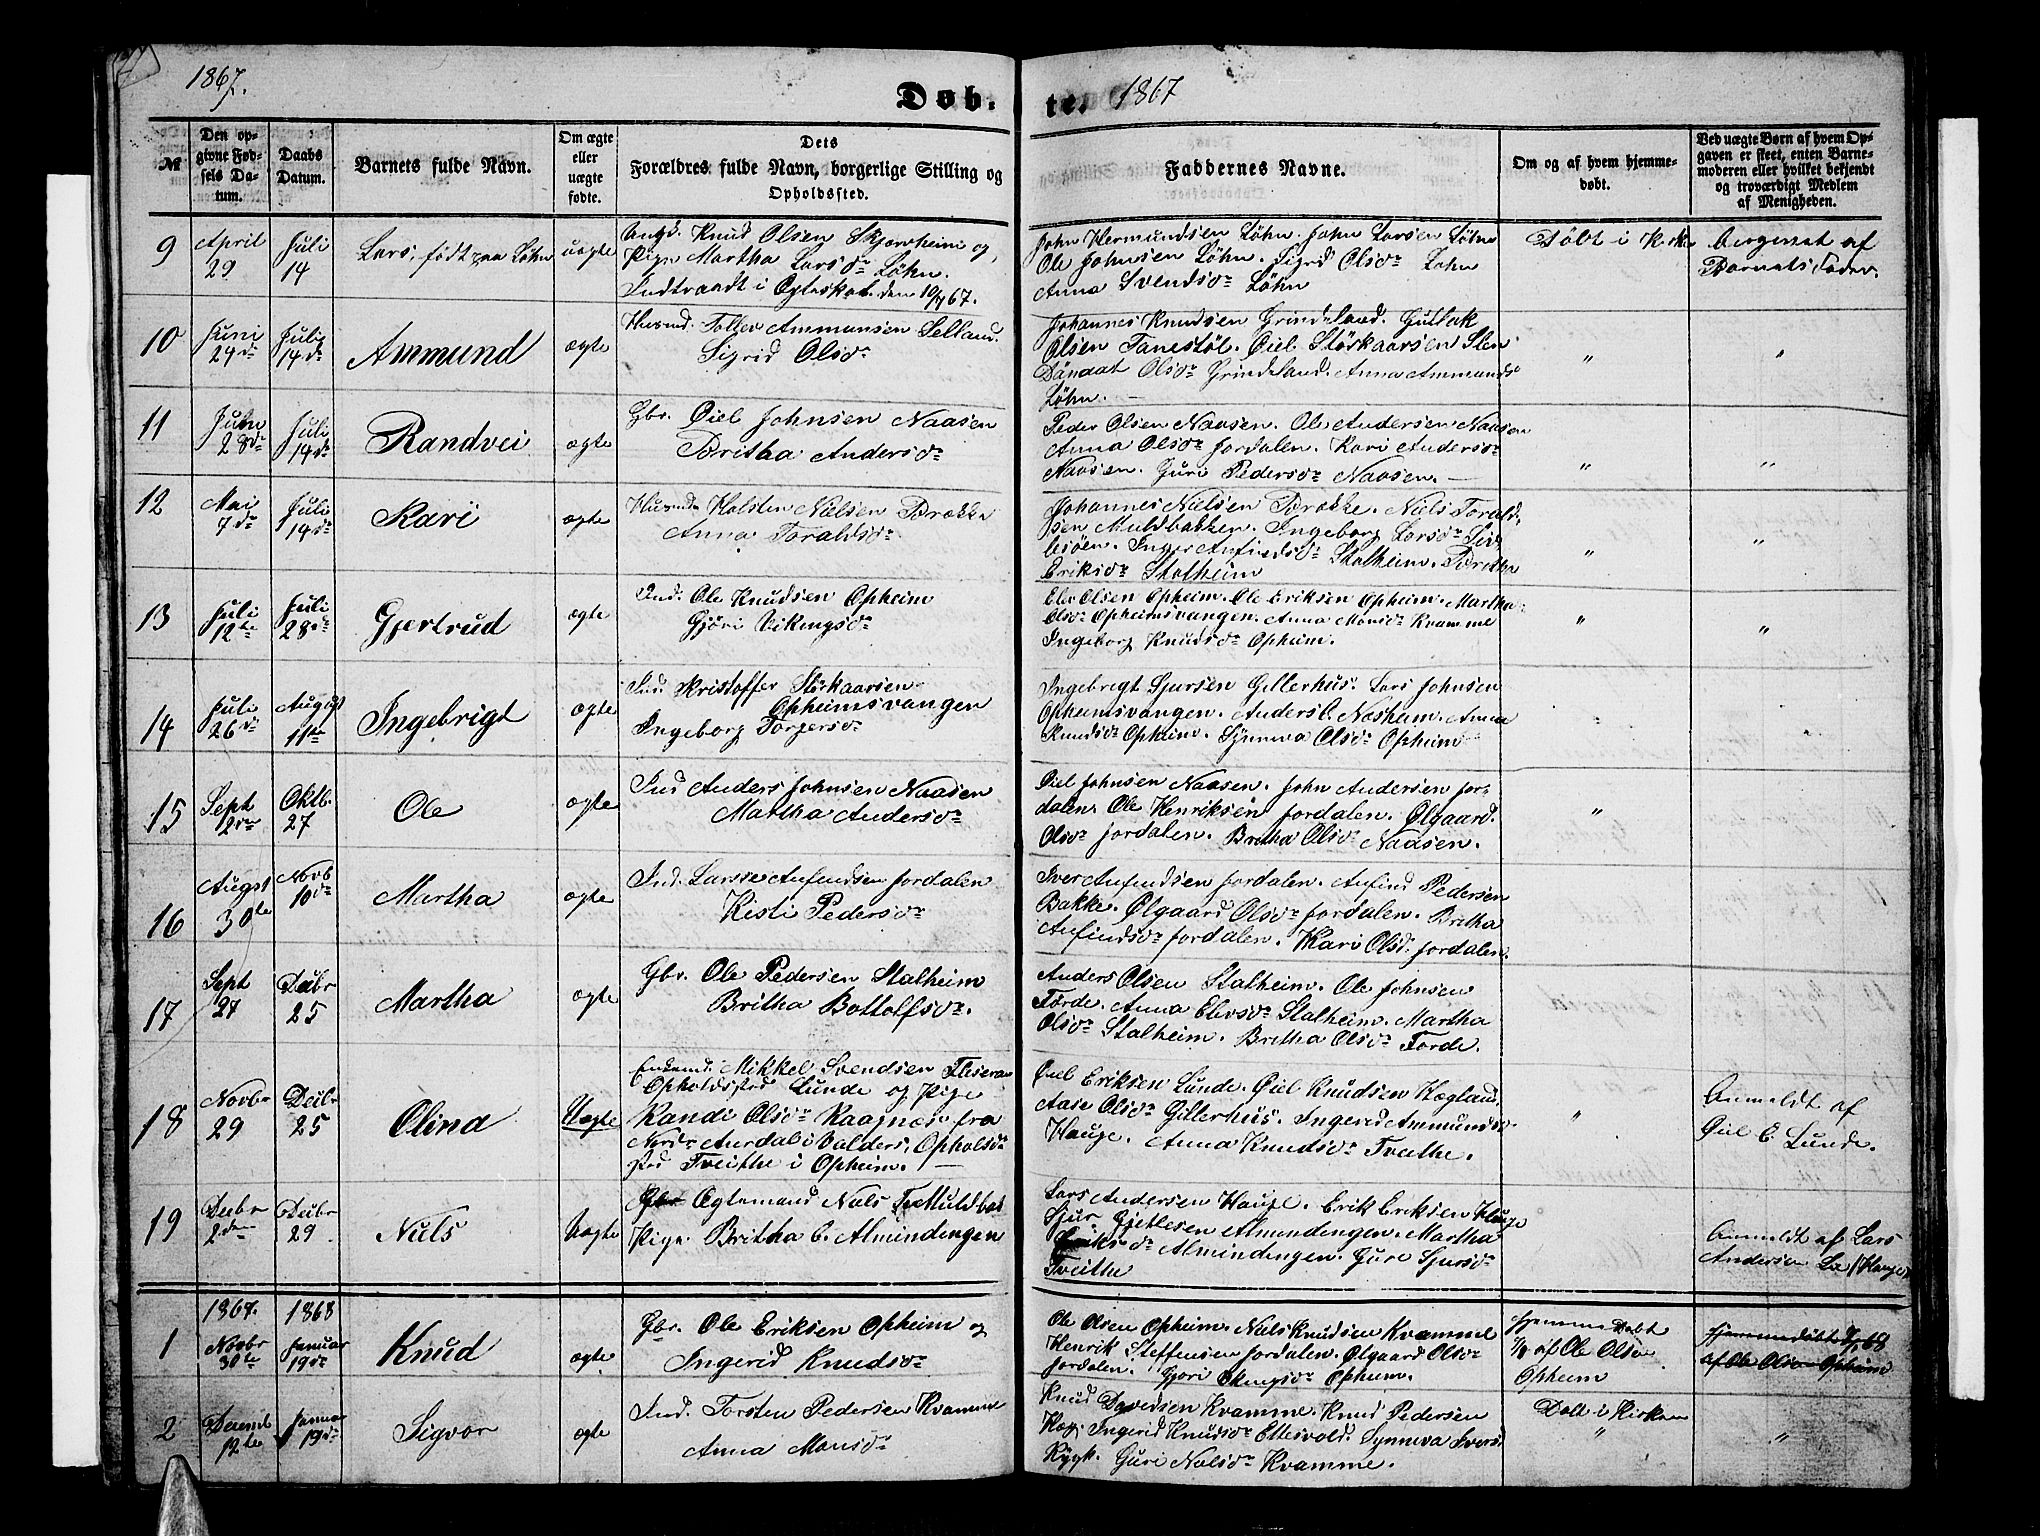 1867.
Døb-
te.
1867
№
Den op-
givne Fød-
sels Da-
tum.
Daabs
Datum.
Barnets fulde Navn.
Om ægte
eller
uægte
fødte.
Dets
Forældres fulde Navn, borgerlige Stilling og
Opholdssted.
Faddernes Navne.
Om og af hvem hjemme-
døbt.
Ved uægte Børn af hvem Op-
gaven er skeet, enten Barne-
moderen eller hvilket bekjendt
og troværdigt Medlem
af Menigheden.
9
April
29
Juli
14
Lars, født paa Løhn
uægte
Ungd. Knud Olsen Skjerveheim og
Pige Martha Larsdr Løhn.
Indtraadt i Ægteskab den 10/7 67.
John Hermundsen Løhn. John Larsen Løhn
Ole Johnsen Løhn. Sigrid Olsdr Løhn
Anna Svendsdr Løhn
Døbt i Kirken
Angivet af
Barnets Fader.
10
Juni
24de
Juli
14de
Ammund
ægte
Husmd. Tollev Ammunsen Selland.
Sigrid Olsdr
Johannes Knudsen Grindeland. Gullak
Olsen Fanestøl. Øiel Størkaarsen Sten
Dandat Olsdr Grindeland. Anna Ammundsdr
Løhn. —
"
"
11
Juni
28de
Juli
14de
Randvei
ægte
Gbr. Øiel Johnsen Naasen
Britha Andersdr
Peder Olsen Naasen. Ole Andersen Naasen
Anna Olsdr Jordalen. Kari Andersdr
Naasen. Guri Pedersdr Naasen. —
"
"
12
Mai
7de
Juli
14de
Kari
ægte
Husmd. Holsten Nielsen Brække
Anna Toraldsdr
Johannes Nielsen Brække. Niels Torald-
sen Muldbakken. Ingeborg Larsdr
Inger Anfindsdr Stalheim. Britha
Eriksdr Stalheim
"
"
13
Juli
12te
Juli
28de
Gjertrud
ægte
Ind. Ole Knudsen Opheim
Gjøri Vikingsdr
Elev Olsen Opheim. Ole Eriksen Opheim. Martha
Olsdr Opheimsvangen. Anna Monsdr Kvamme
Ingeborg Knudsdr Opheim.
"
"
14
Juli
26de
August
11te
Ingebrigt
ægte
Ind. Kristoffer Størkaarsen
Opheimsvangen
Ingeborg Torgersdr
Ingebrigt Sjursen Gillerhus. Lars Johnsen
Opheimsvangen. Anders Næsheim. Anna
Knudsdr Opheim. Synneva Olsdr Opheim
15
Sept
12te
Oktb.
27
Ole
ægte
Ind Anders Johnsen Naasen
Martha Andersdr
Øiel Johnsen Naasen. John Andersen Jor-
dalen. Ole Henriksen Jordalen. Ølgaard.
Olsdr Jordalen. Britha Olsdr Naasen.
"
16
Augst
30te
Novb
10de
Martha
ægte
Ind. Lasse Anfindsen Jordalen
Kisti Pedersdr
Iver Anfindsen Jordalen. Anfind Pedersen
Bakke. Ølgaard Olsdr Jordalen. Britha
Anfindsdr Jordalen. Kari Olsdr Jordalen.
17
Sept
27
Decbr
25
Martha
ægte
Gbr. Ole Pedersen Stalheim
Britha Bottolfsdr.
Anders Olsen Stalheim. Ole Johnsen
Førde. Anna Elevsdr Stalheim. Martha
Olsdr Stalheim. Britha Olsdr Førde.
18
Novbr
29
Decbr
25
Olina
Uægte
Enkemd. Mikkel Svendsen
Opholdssted Lunde og Pige
Randi Olsdr Kaagnæs fra
Nordr Aurdal i Valders, Opholds-
sted Tveithe i Opheim. —
Øiel Eriksen Lunde. Øiel Knudsen Hægland
Aase Olsdr Gillerhus. Ingerid Ammundsdr
Hauge. Anna Knudsdr Tveithe.
"
Anmeldt af
Øiel E. Lunde.
19
Decbr
2den
Decbr
29
Niels
Uægte
Gbr Ægtemand Niels T. Muldbak
Pige. Britha E. Almindingen
Lars Andersen Hauge. Erik Eriksen Hauge
Sjur Gjetlesen Almendingen. Martha
Eriksdr Almindingen. Guri Sjursdr
Tveithe
Anmeldt af Lars
Andersen (Hauge)
1
1867.
Novbr
30te
1868
Januar
19de
Knud
ægte
Gbr. Ole Eriksen Opheim og
Ingerid Knudsdr
Ole Olsen Opheim. Niels Knudsen Kvamme
Henrik Steffensen Jordalen. Ølgaard Olsdr
Jordalen. Gjøri Opheim.
Hjemmedøbt
af Ole Olsen
Opheim
Hjemmedøbt 68
af Ole Olsen Opheim
2
Decemb
12te
Januar
19de
Sigvor
ægte
Ind. Torsten Pedersen Kvamme
Anna Monsdr
Knud Davidsen Kvamme. Knud Pedersen
Hæg. Ingerid Knudsdr Ettesvold. Synneva Ivers
Rygh. Guri Nielsdr Kvamme.
Døbt i Kirken
"
"